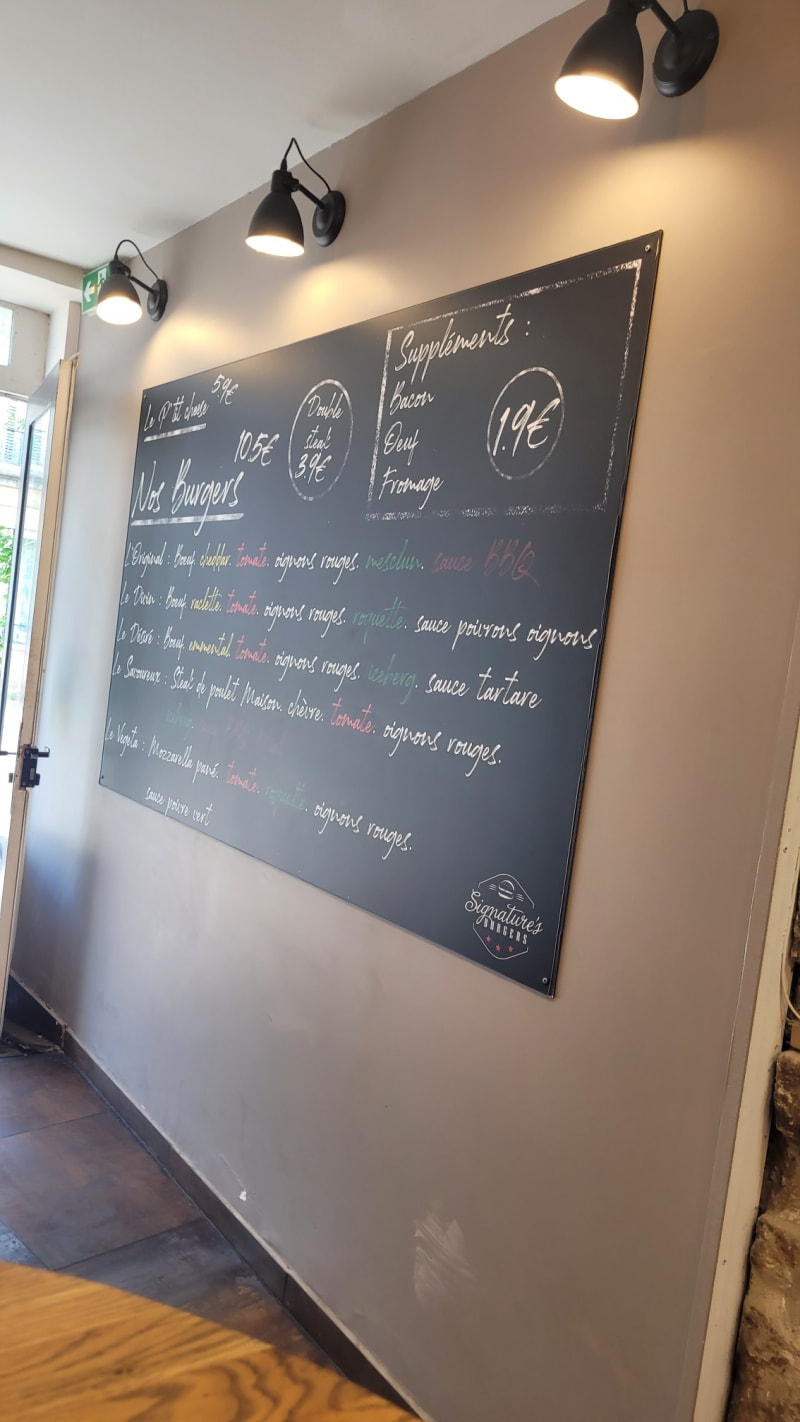 Le P'tit cheese 5.9€
Nos Burgers 10.5€
Double
steak
3.9€
Suppléments :
Bacon
Oeuf
Fromage
1.9€
L'Original : Boeuf. cheddar. tomate. oignons rouges. mesclun. sauce BBQ
Le Divin : Boeuf. raclette. tomate. oignons rouges. roquette. sauce poivrons oignons
Le Désiré : Boeuf. emmental. tomate. oignons rouges. iceberg. sauce tartare
Le Savoureux : Steak de poulet Maison. chèvre. tomate. oignons rouges.
iceberg. sauce BBQ
Le Vegeta : Mozzarella pané. tomate. roquette. oignons rouges.
sauce poivre vert
Signature's
BURGERS